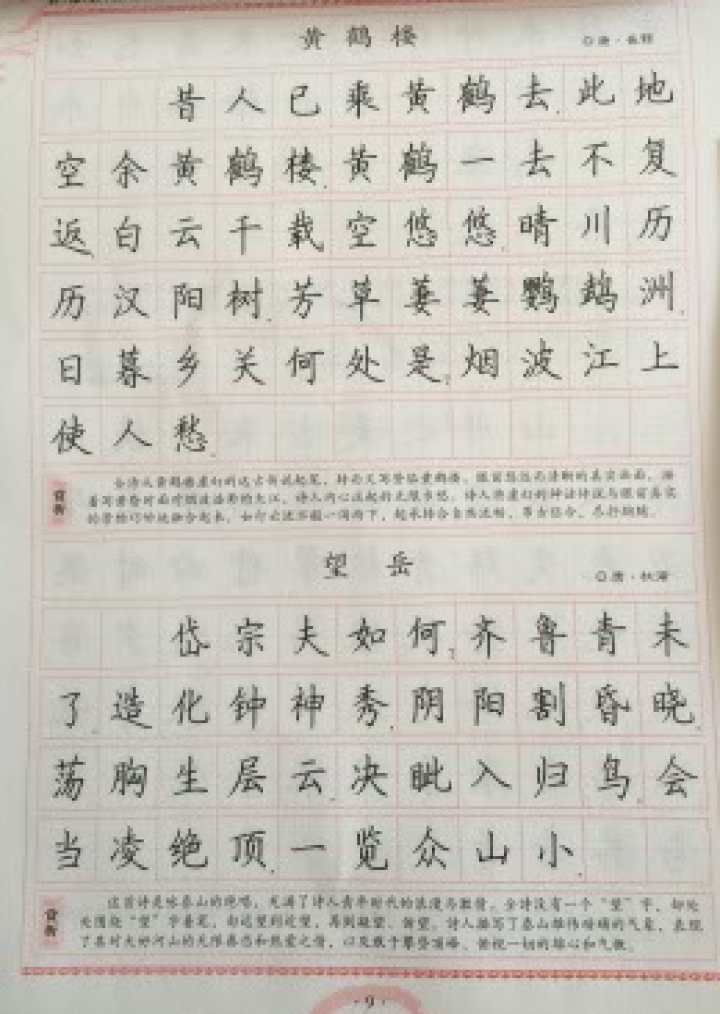 黄鹤楼
◎唐·崔颢
昔人已乘黄鹤去,此地
空余黄鹤楼.黄鹤一去不复
返,白云千载空悠悠.晴川历
历汉阳树,芳草萋萋鹦鹉洲.
日暮乡关何处是,烟波江上
使人愁.
赏析
望岳
◎唐·杜甫
岱宗夫如何?齐鲁青未
了.造化钟神秀,阴阳割昏晓.
荡胸生层云,决眦入归鸟.会
当凌绝顶,一览众山小.
赏析
这首诗是咏泰山的绝唱,充满了诗人青年时代的浪漫与激情。全诗没有一个“望”字,却处
处围绕“望”字着笔,由远望到近望,再到凝望、俯望。诗人描写了泰山雄伟磅礴的气象,表现
了其对大好河山的无限喜悲和热爱之情,以及敢于攀登顶峰、俯视一切的雄心和气概。
·9·